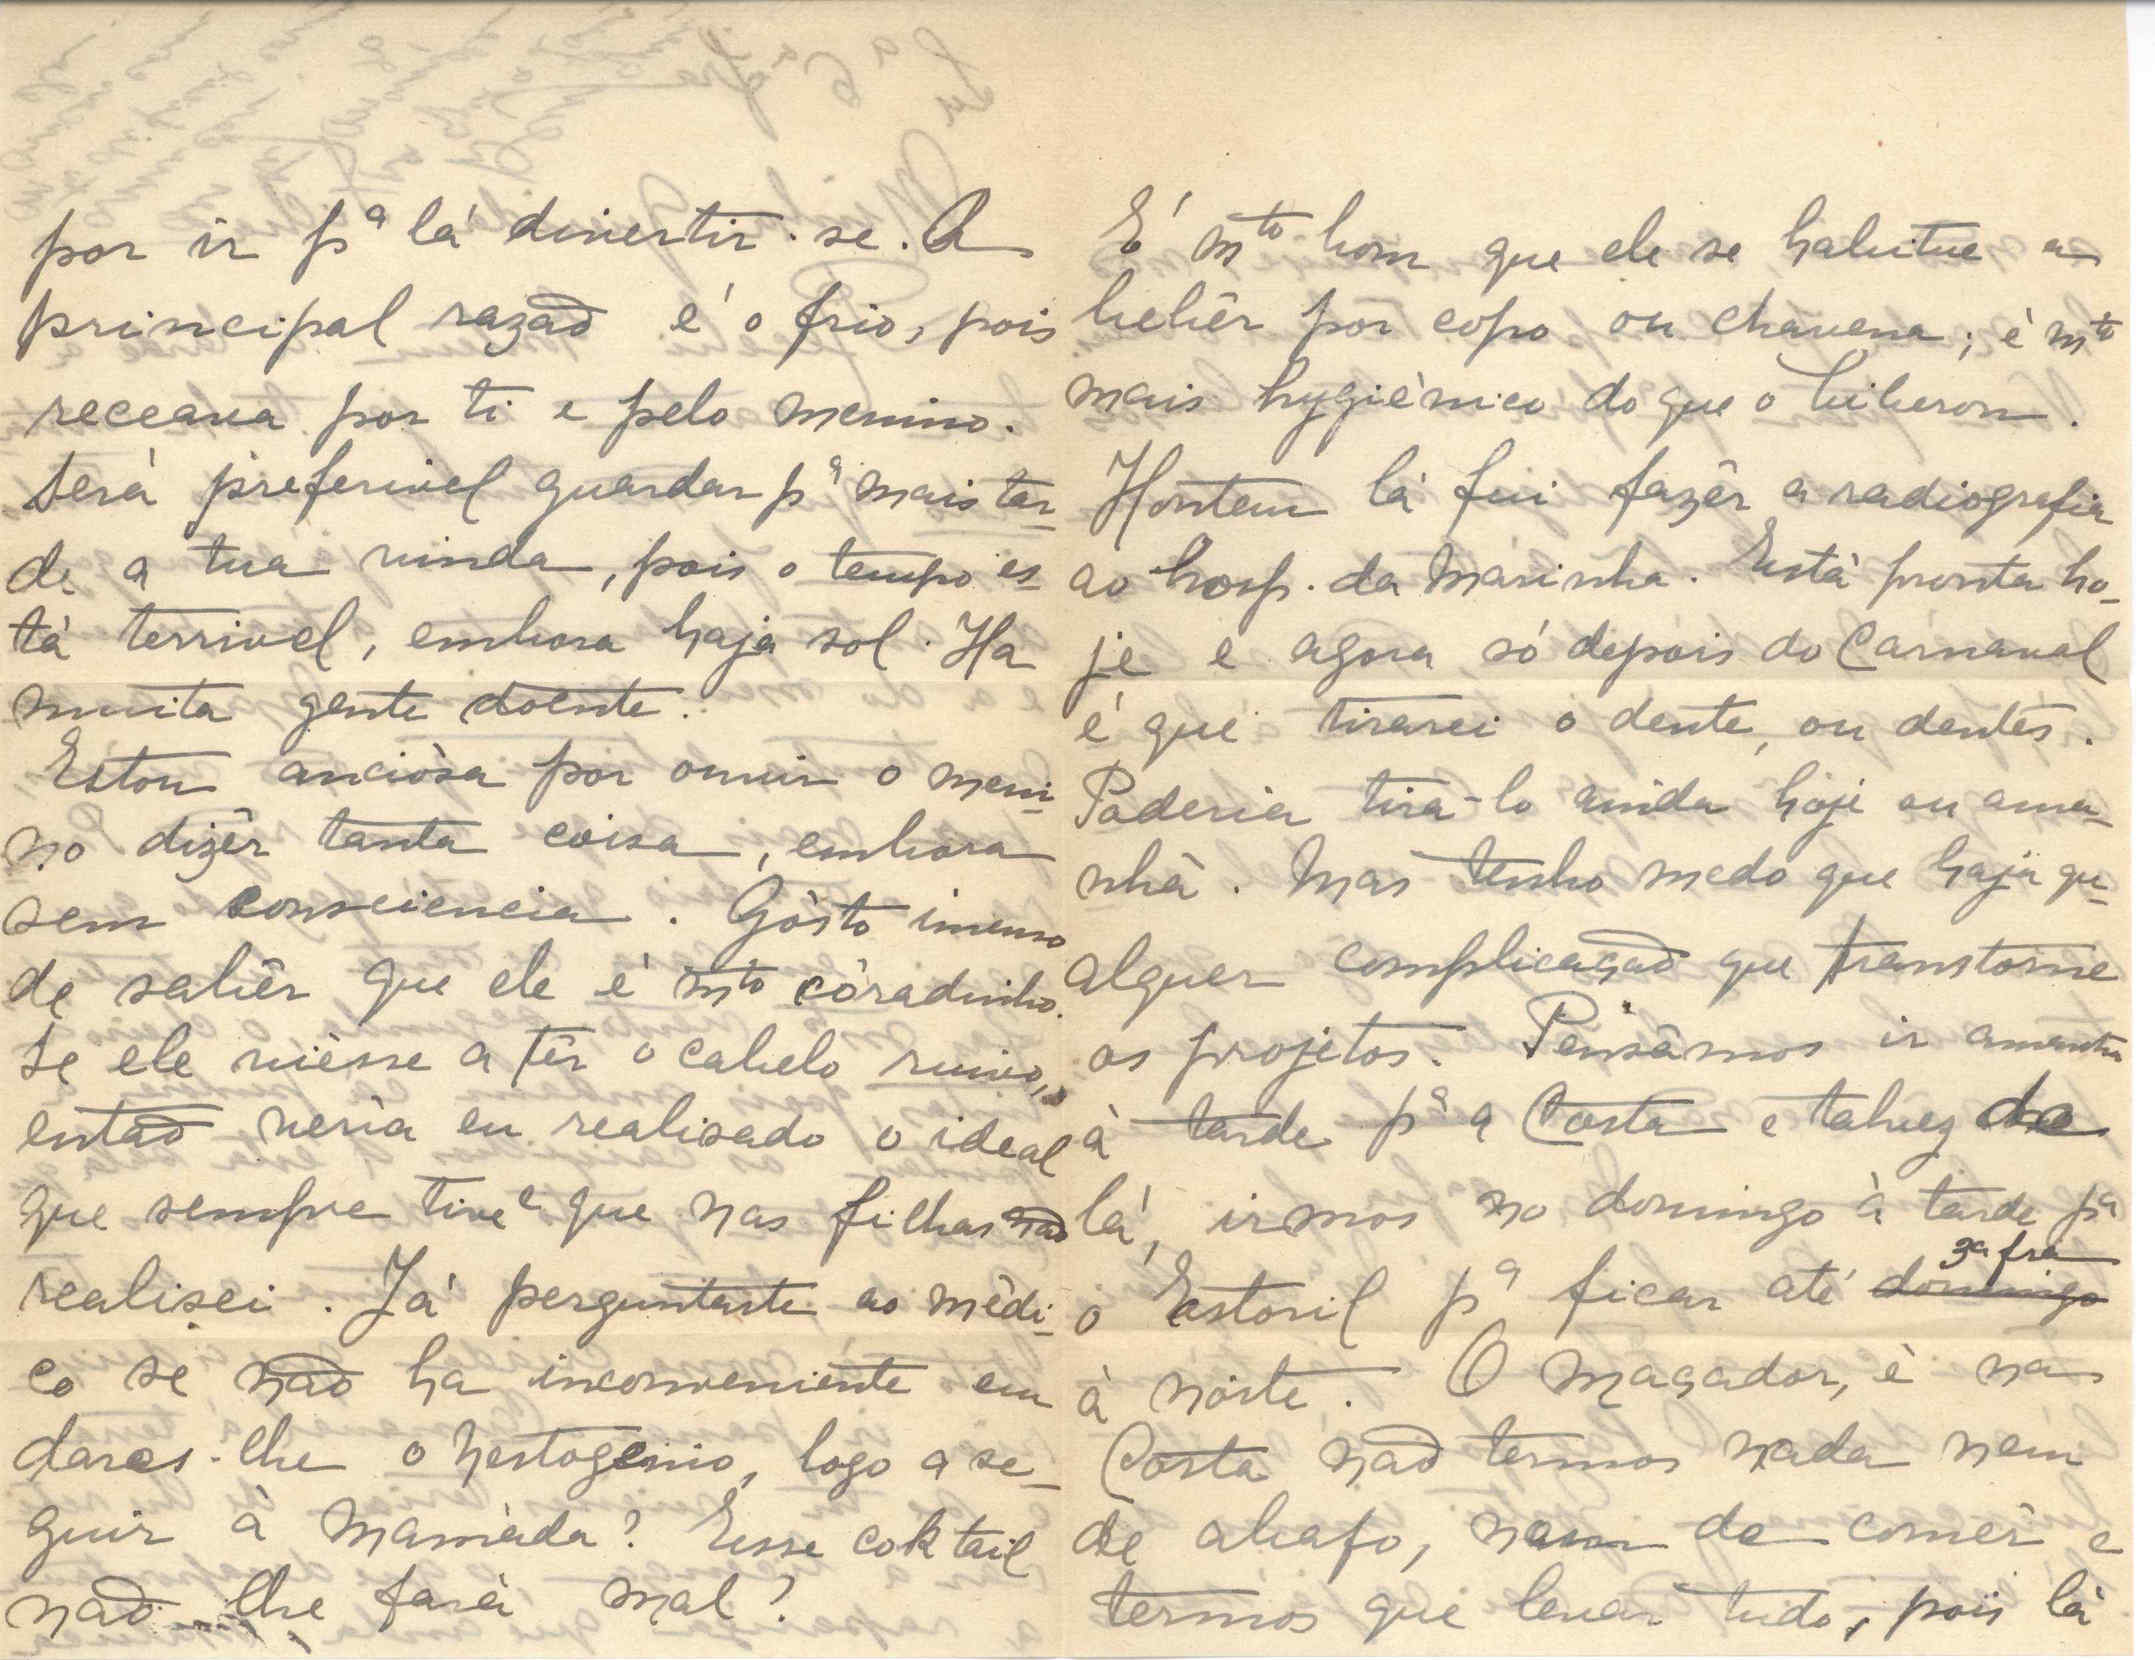 por ir pª lá divertir-se. A
principal razaõ é o frio, pois
receava por ti e pelo menino.
Será preferivel guardar pª mais tar-
de a tua vinda, pois o tempo es-
tá terrivel, embora haja sol. Ha
muita gente doente.
Estou anciósa por ouvir o meni-
no dizêr tanta coisa, embora
sem consciencia. Gósto imenso
de sabêr que ele é mto córadinho.
Se ele viésse a têr o cabelo ruivo,
entaõ veria eu realisado o ideal
que sempre tive e que nas filhas naõ
realisei. Já perguntaste ao médi-
co se naõ ha inconveniente em
dares-lhe o nestogenio, logo a se-
guir à mamáda? Esse coktail
naõ lhe fará mal?
É mto bom que ele se habitue a
bebêr por copo ou chavena; é mto
mais hygiénico do que o biberon.
Hontem lá fui fazêr a radiografia
ao hosp. da Marinha. Está pronta ho-
je e agora só depois do Carnaval
é que tirarei o dente, ou dentes.
Poderia tira-lo ainda hoje ou ama-
nhã. Mas tenho medo que haja qu-
alquer complicaçaõ que transtorne
os projetos. Pensâmos ir amanhã
à tarde pª a Costa e talvez de
lá, irmos no domingo à tarde pª
o Estoril pª ficar até domingo 3ª fra
à nóite. O maçador, é na
Costa naõ termos nada nem
de abafo, nem de comêr e
termos que levar tudo, pois lá